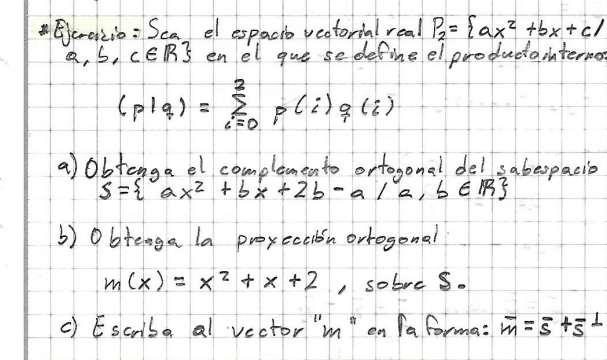 *Ejercicio: Sea el espacio vectorial real P₂= {ax² +bx+c/
a, b, c ∈ ℝ} en el que se define el producto interno:
(p|q) = Σ_{i=0}^{2} p(i) q(i)
a) Obtenga el complemento ortogonal del subespacio
S={ ax² + bx + 2b - a / a, b ∈ ℝ}
b) Obtenga la proyección ortogonal
m(x) = x² + x + 2 , sobre S.
c) Escriba al vector "m" en la forma: m̄ = s̄ + s̄^⊥